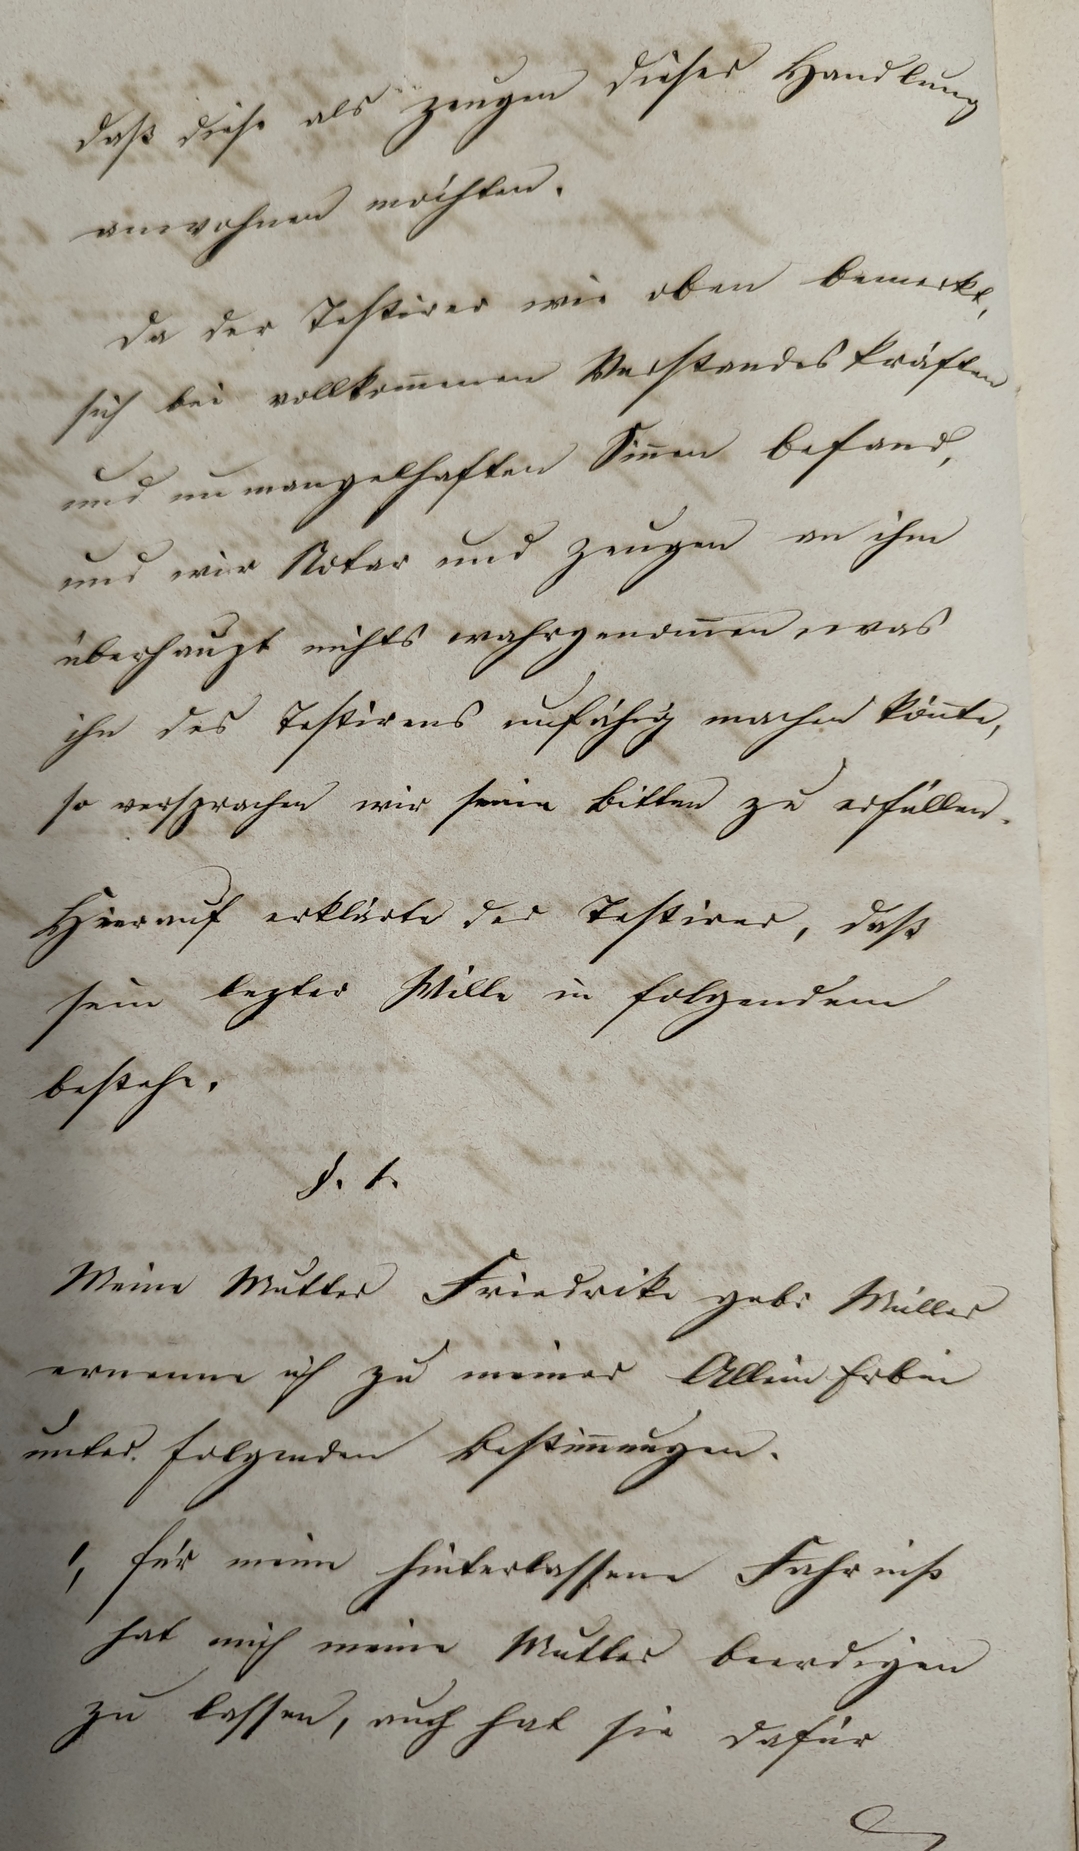 daß diese als Zeugen dieser Handlung
anwohnen möchten.
Da der Testirer wie oben bemerkt,
sich bei vollkom̅enen Verstandeskräften
und unmangelhaften Sin̅en befand,
und wir Notar und Zeugen an ihm
überhaupt nichts wahrgenom̅en, was
ihn des Testirens unfähig machen kön̅te,
so versprachen wir seine Bitten zu erfüllen.
Hierauf erklärte der Testirer, daß
sein lezter Wille in folgendem
bestehe.
§. 1.
Meine Mutter Friedrike geb: Müller
ernenne ich zu meiner Allein Erbin
unter folgenden Bestim̅ungen.
1, für meine hinterlassene Fahrniß
hat mich meine Mutter beerdigen
zu lassen, auch hat sie dafür